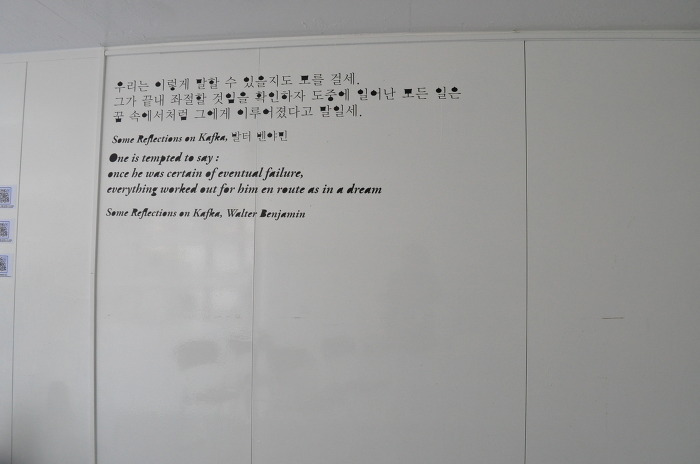 우리는 이렇게 말할 수 있을지도 모를 걸세.
그가 끝내 좌절할 것임을 확인하자 도중에 일어난 모든 일은
꿈 속에서처럼 그에게 이루어졌다고 말일세.
Some Reflections on Kafka, 발터 벤야민
One is tempted to say :
once he was certain of eventual failure,
everything worked out for him en route as in a dream
Some Reflections on Kafka, Walter Benjamin